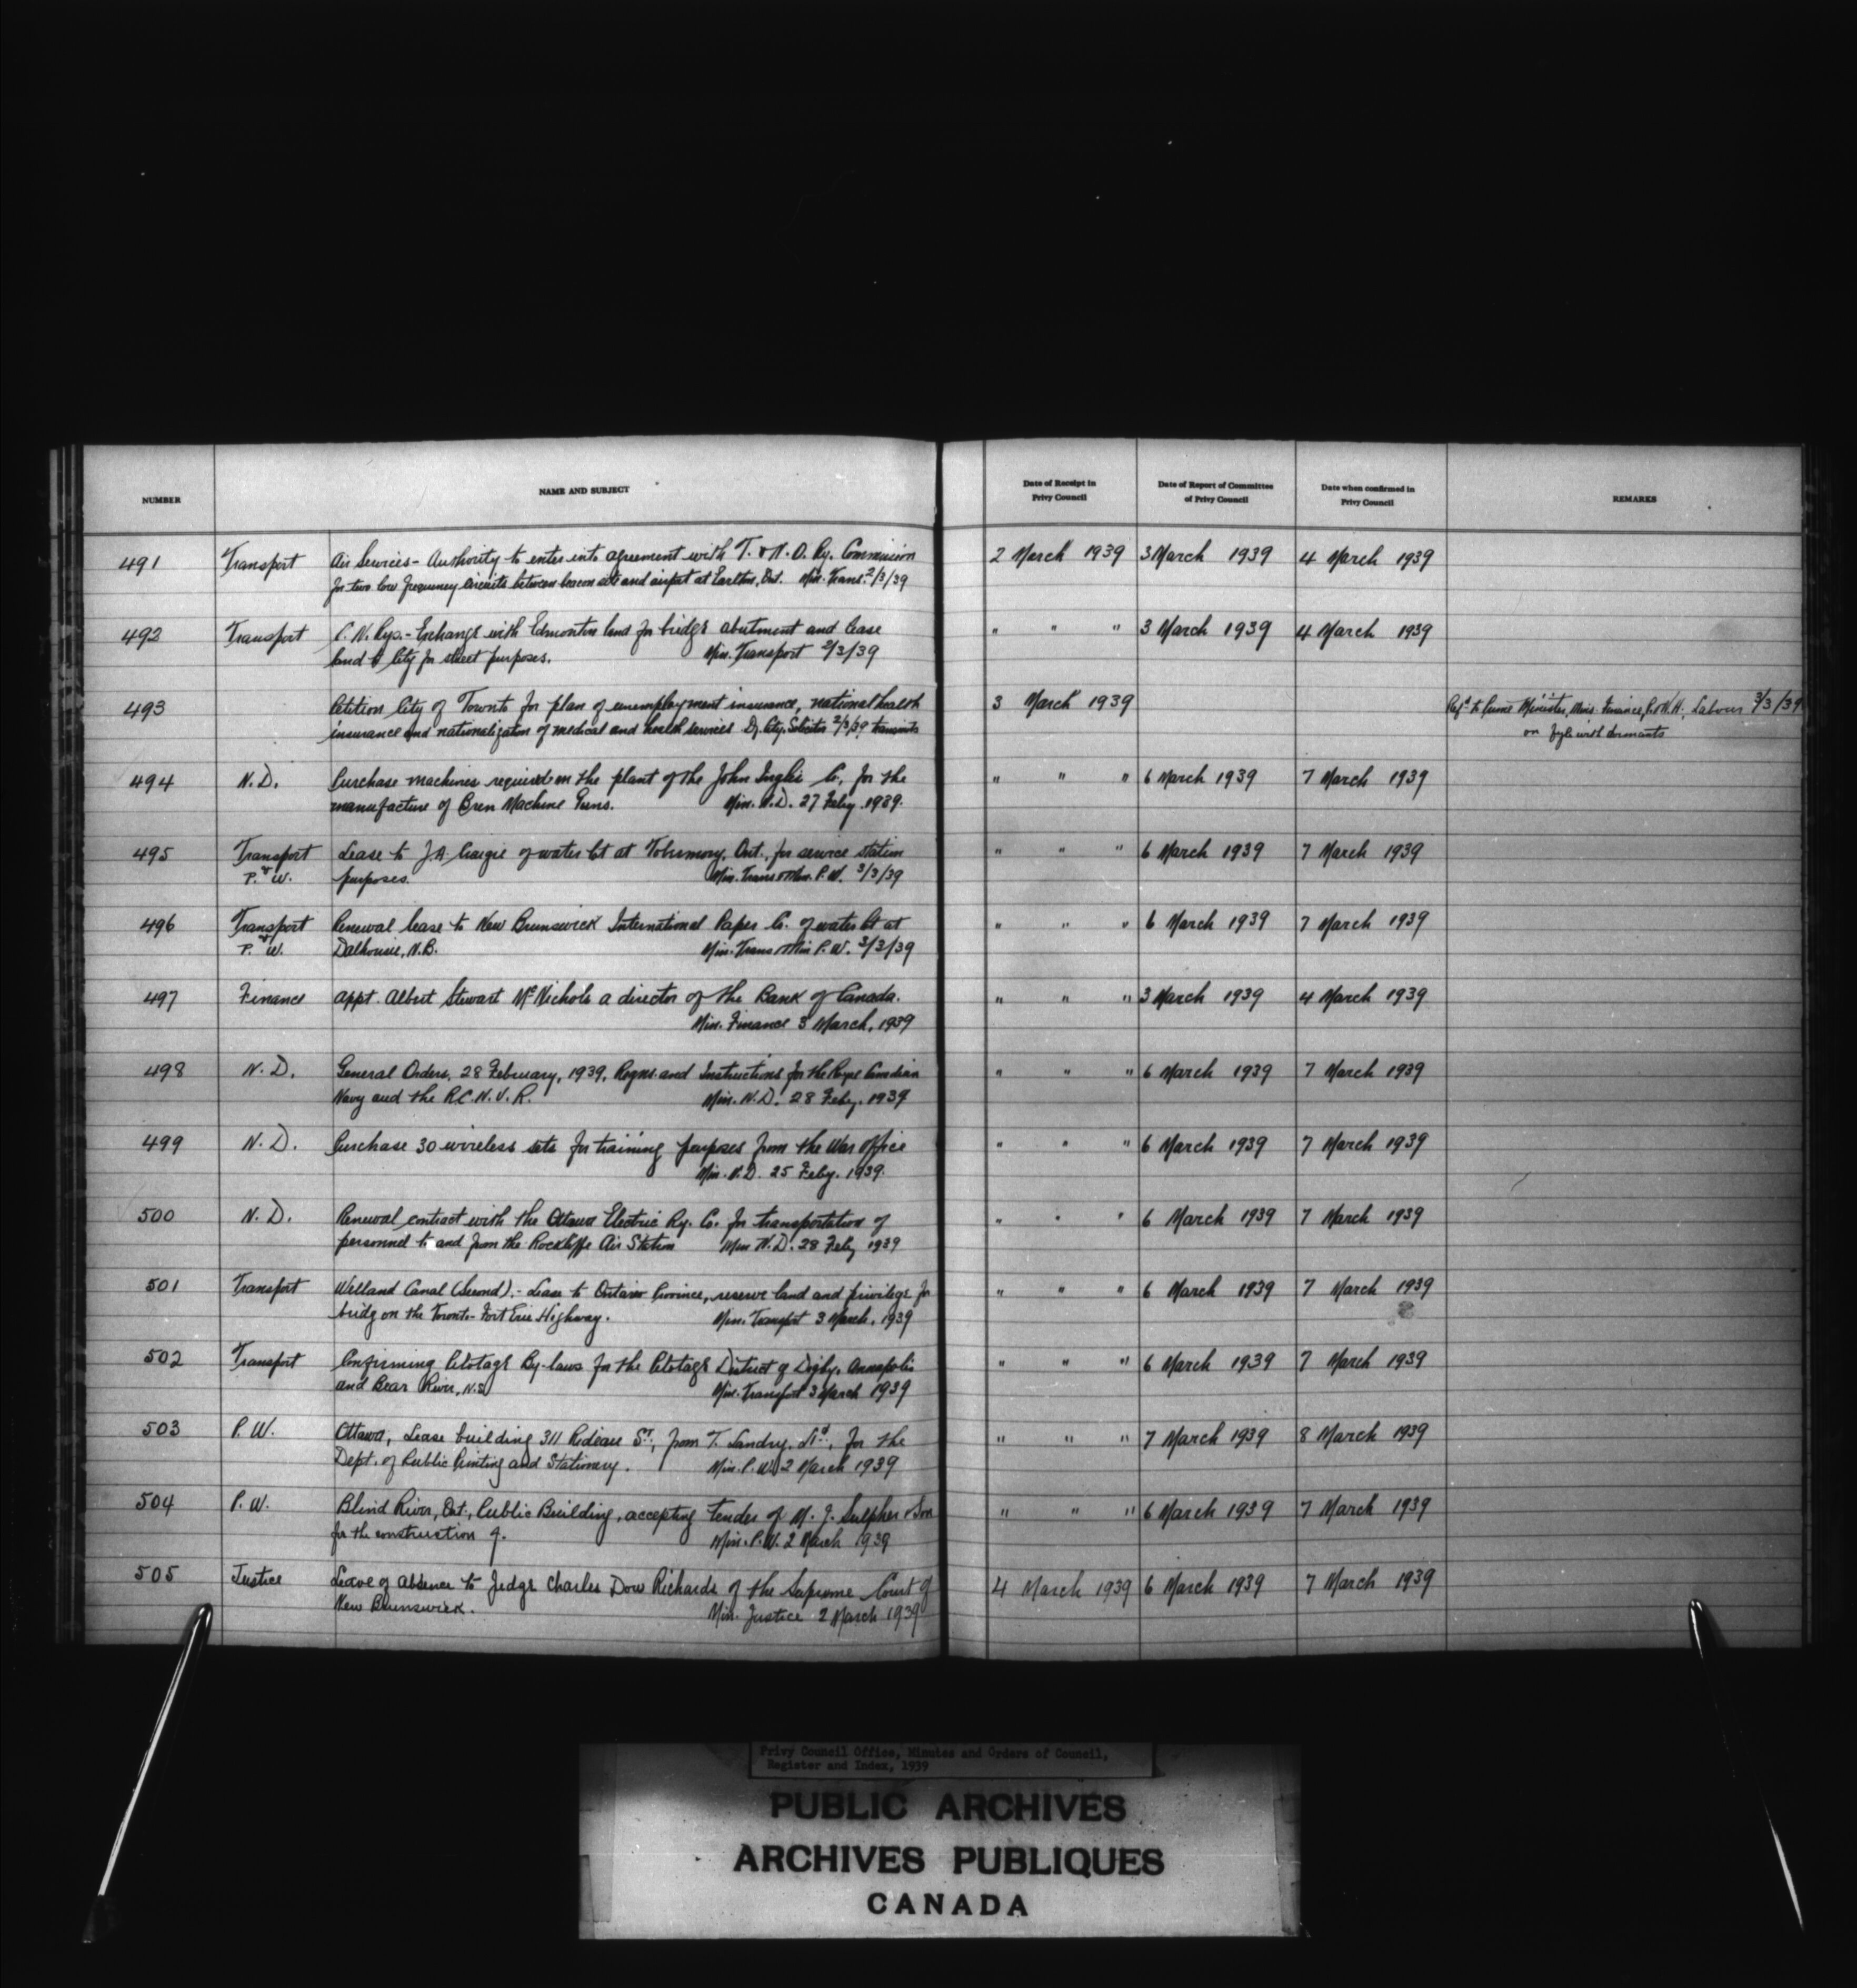 NUMBER NAME AND SUBJECT Date of Receipt in Privy Council Date of Report of Committee of Privy Council Date when confirmed in Privy Council REMARKS
491 Transport Air Services - Authority to enter into agreement with T. & N. O. Ry. Commission 2 March 1939 3 March 1939 4 March 1939
for two low frequency circuits between beacon site and airport at Earlton, Ont. Min. Trans. 2/3/39
492 Transport C. N. Rys. - Exchange with Edmonton land for bridge abutment and lease " " " 3 March 1939 4 March 1939
land to City for street purposes. Min. Transport 2/3/39
493 Petition City of Toronto for plan of unemployment insurance, national health 3 March 1939 Refd to Prime Minister, Mins. Finance, P. & N. H., Labour 3/3/39
insurance and nationalization of medical and health services Dy. City Solicitor 2/3/39 transmits on fyle with dormants
494 N. D. Purchase machines required in the plant of the John Inglis Co. for the " " " 6 March 1939 7 March 1939
manufacture of Bren Machine Guns. Min. N. D. 27 Feby. 1939.
495 Transport Lease to J. A. Craigie of water lot at Tobermory, Ont., for service station " " " 6 March 1939 7 March 1939
P. & W. purposes. Min. Trans & Min. P. W. 3/3/39
496 Transport Renewal lease to New Brunswick International Paper Co. of water lot at " " " 6 March 1939 7 March 1939
P. & W. Dalhousie, N. B. Min. Trans & Min P. W. 3/3/39
497 Finance Appt. Albert Stewart McNichols a director of the Bank of Canada. " " " 3 March 1939 4 March 1939
Min. Finance 3 March, 1939
498 N. D. General Orders, 28 February, 1939, Regns. and Instructions for the Royal Canadian " " " 6 March 1939 7 March 1939
Navy and the R. C. N. V. R. Min. N. D. 28 Feby. 1939
499 N. D. Purchase 30 wireless sets for training purposes from the War Office " " " 6 March 1939 7 March 1939
Min. N. D. 25 Feby. 1939.
500 N. D. Renewal contract with the Ottawa Electric Ry. Co. for transportation of " " " 6 March 1939 7 March 1939
personnel to and from the Rockliffe Air Station Min N. D. 28 Feby 1939
501 Transport Welland Canal (Second). - Lease to Ontario Province, reserve land and privilege for " " " 6 March 1939 7 March 1939
bridge on the Toronto - Fort Erie Highway. Min. Transport 3 March, 1939
502 Transport Confirming Pilotage By-laws for the Pilotage District of Digby, Annapolis " " " 6 March 1939 7 March 1939
and Bear River, N.S. Min. Transport 3 March 1939
503 P. W. Ottawa, Lease building 311 Rideau St., from T. Landry, Ltd., for the " " " 7 March 1939 8 March 1939
Dept. of Public Printing and Stationery. Min. P. W. 2 March 1939
504 P. W. Blind River, Ont., Public Building, accepting tender of M. J. Sulpher & Son " " " 6 March 1939 7 March 1939
for the construction of. Min. P. W. 2 March 1939
505 Justice Leave of absence to Judge Charles Dow Richards of the Supreme Court of 4 March 1939 6 March 1939 7 March 1939
New Brunswick. Min. Justice 2 March 1939
Privy Council Office, Minutes and Orders of Council,
Register and Index, 1939
PUBLIC ARCHIVES
ARCHIVES PUBLIQUES
CANADA